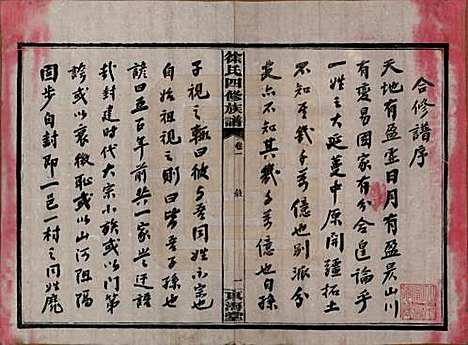 合修譜序
天地有盈虛日月有盈昃山川
有變易國家有分合皇論乎
一姓之大延蔓中原開疆拓土
不知其幾千萬億也別派分
支亦不知其幾千萬億也自孫
徐氏四修族譜
卷一
序
一
東海堂
子視之輒曰彼与吾同姓而不宗也
自始祖視之則曰皆吾子孫也
諺曰五百年前共一家其迂諸
哉封建時代大宗小族或以門第
誇或以衰微恥或以山河阻隔
固步自封即一邑一村之同姓魔